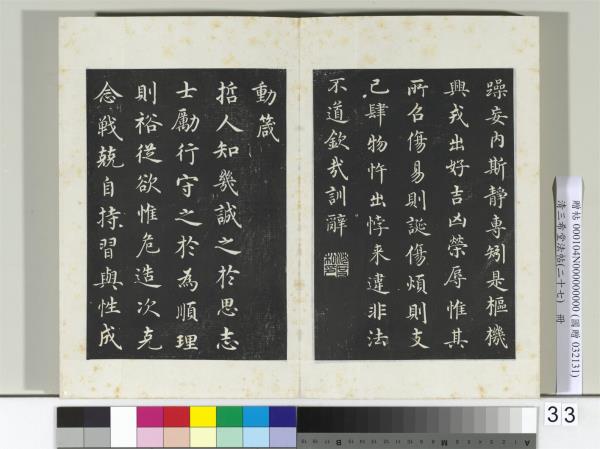 躁妄內斯靜專矧是樞機
興戎出好吉凶榮辱惟其
所召傷易則誕傷煩則支
己肆物忤出悖来違非法
不道欽哉訓辭
動箴
哲人知幾誠之於思志
士勵行守之於為順理
則裕從欲惟危造次克
念戰兢自持習與性成
贈帖 000104N000000000 (國贈 032131)
清三希堂法帖(二十七) 冊
33